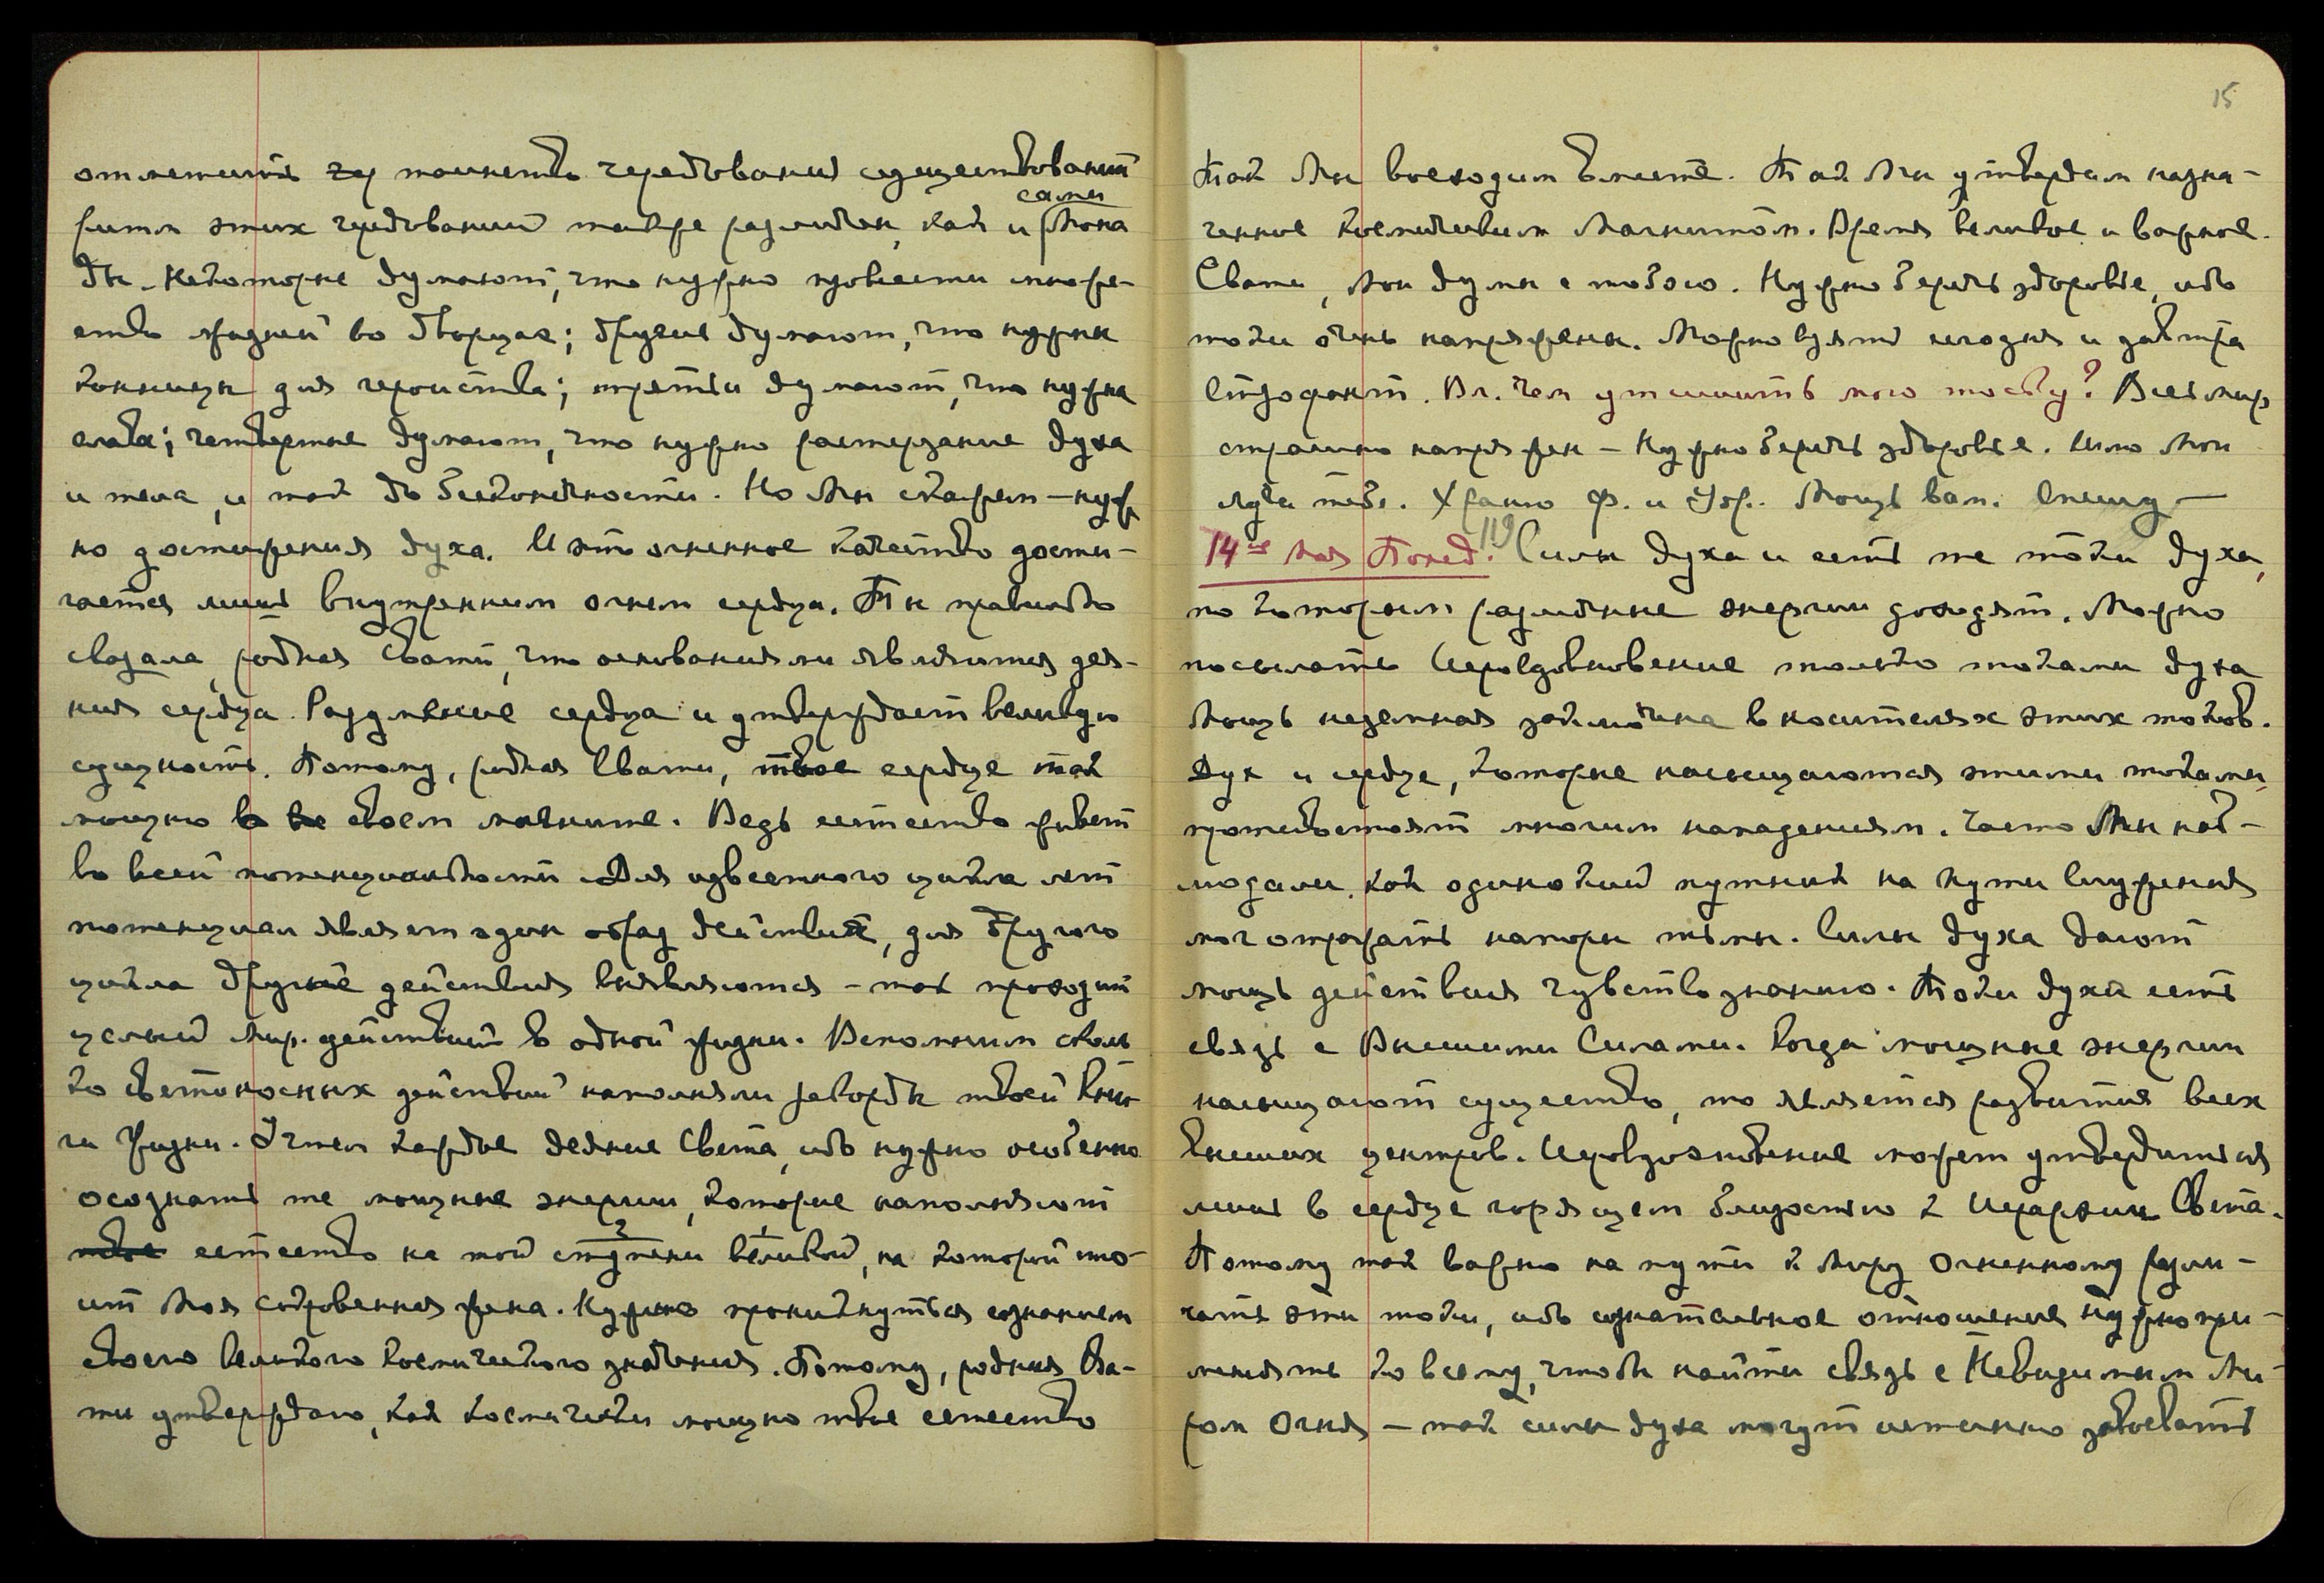 отметить таинство чередования существований
сами
ритм этих чередований также различен, как и Мона
ды. Некоторые думают, что нужно провести множе-
ство жизней во дворцах; другие думают, что нужны
конницы для геройства; третьи думают, что нужна
слава; четвертые думают, что нужно растерзание духа
и тела, и так до бесконечности. Но Мы скажем — нуж
но достижения духа. И это огненное качество дости-
гается лишь внутренним огнем сердца. Ты правильно
сказала, родная Свати, что основаниями являются дея-
ния сердца. Разумение сердца и утверждает великую
сущность. Потому, родная Свати, твое сердце так
мощно в своем магните. Ведь естество живет
во всей потенциальности. Для известного цикла лет
потенциал являет один образ действия, для другого
цикла другие действия выявляются — так проходит
целый мир действий в одной жизни. Вспомним сколь
ко светоносных действий наполняли рекорды твоей Кни
ги Жизни. Чтем каждое деяние Света, ибо нужно особенно
осознать те мощные энергии, которые наполняют
2 1
твое естество на той ступени великой, на которой сто-
ит Моя сокровенная жена. Нужно проникнуться сознанием
своего великого космического значения. Потому, родная Сва-
ти утверждаю, как космически мощно твое естество
15
Так Мы восходим вместе. Так Мы утвердим назна-
ченное Космическим Магнитом. Время великое и важное.
Свати, Мои думы с тобою. Нужно беречь здоровье, ибо
токи очень напряжены. Можно взять сегодня и завтра
Строфант. Вл. Чем утешить мою тоску? Весь мир
страшно напряжен — Нужно беречь здоровье. Шлю Мои
лучи тебе. Храню Ф. и Ур. Мощь вам. Спешу —
14-ое мая Понед. 119 Силы духа и есть те токи духа,
по которым различные энергии доходят. Можно
посылать Иеровдохновение только токами духа
Мощь неземная заключена в носителях этих токов.
Дух и сердце, которые насыщаются этими токами,
противостоят многим нападениям. Часто Мы наб-
людали, как одинокий путник на пути Служения
мог отражать напоры тьмы. Силы духа дают
мощь действия чувствознанию. Токи духа есть
связь с Высшими Силами. Когда мощные энергии
насыщают существо, то является развитие всех
высших центров. Иеровдохновение может утвердиться
лишь в сердце горящем близостью к Иерархии Света.
Потому так важно на пути к Миру Огненному разли-
чать эти токи, ибо сознательное отношение нужно при-
менять ко всему, чтобы найти связь с Невидимым Ми-
ром Огня — так силы духа могут истинно завоевать